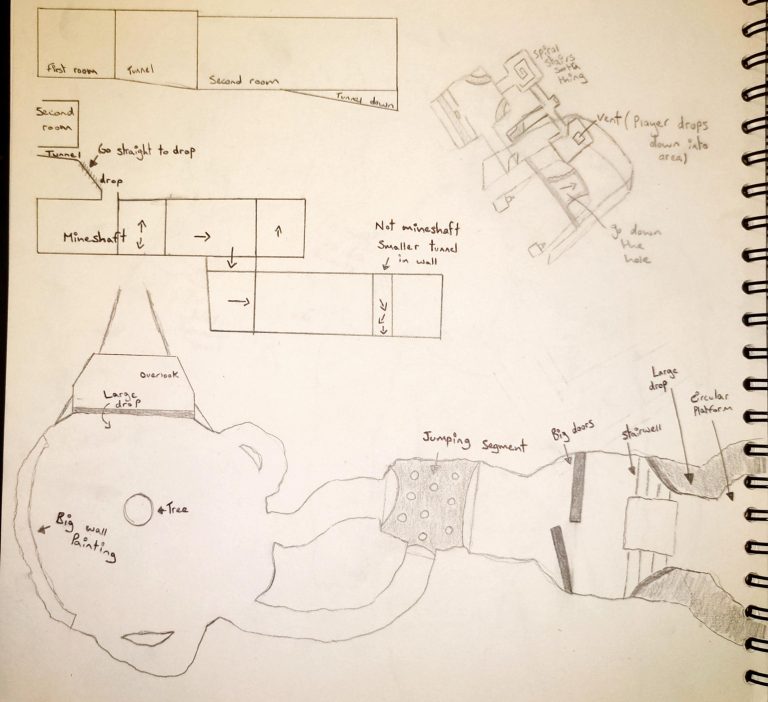 First room
Tunnel
Second room
Tunnel down
Second
room
Tunnel
Go straight to drop
drop
Mineshaft
Not mineshaft
Smaller tunnel
in wall
spiral
stairs
thing
vent (Player drops
down into
area)
go down
the
hole
Overlook
Large
drop
Tree
Big wall
Painting
Jumping Segment
Big doors
Stairwell
Large
drop
Circular
Platform